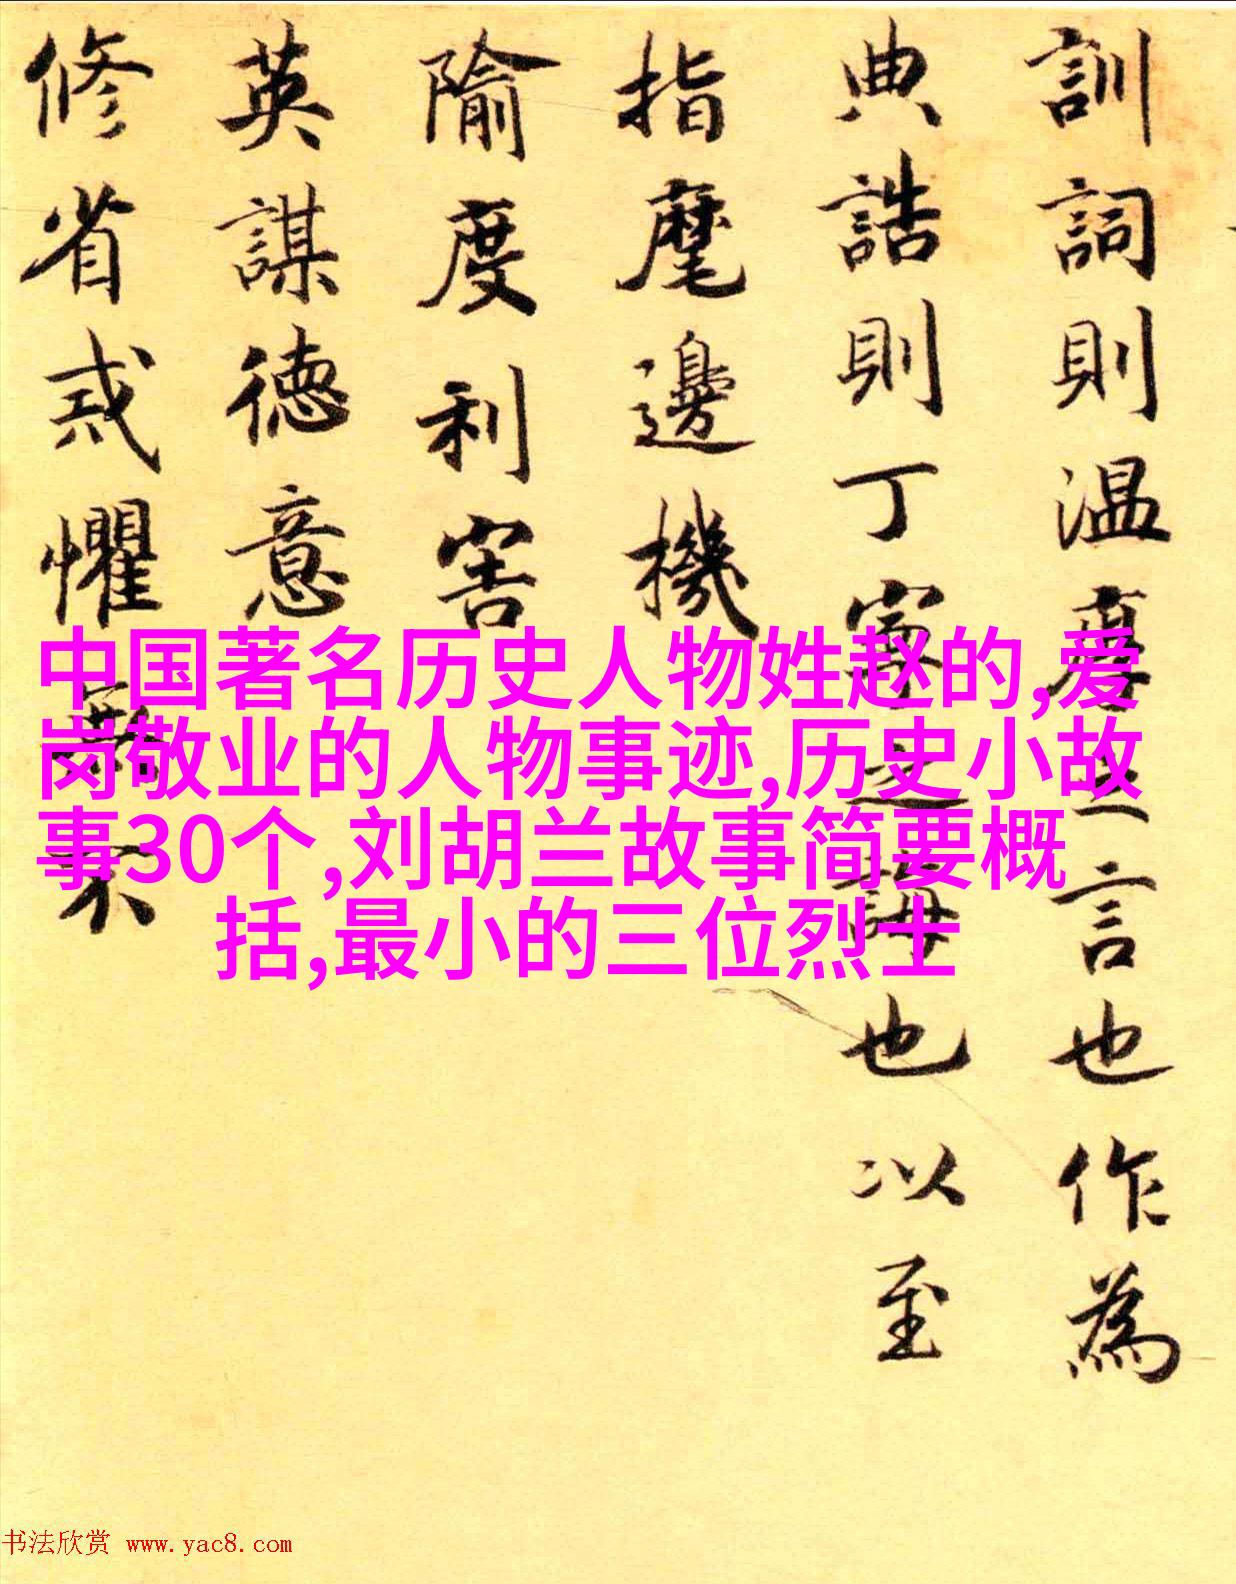 訓詞則温厚之言也作為
典誥則丁寧之誨也以至
指麾邊機
隃度利害
英謀德意
修省戒懼無不
中国著名历史人物姓赵的,爱
岗敬业的人物事迹,历史小故
事30个,刘胡兰故事简要概
括,最小的三位烈士
书法欣赏 www.yac8.com